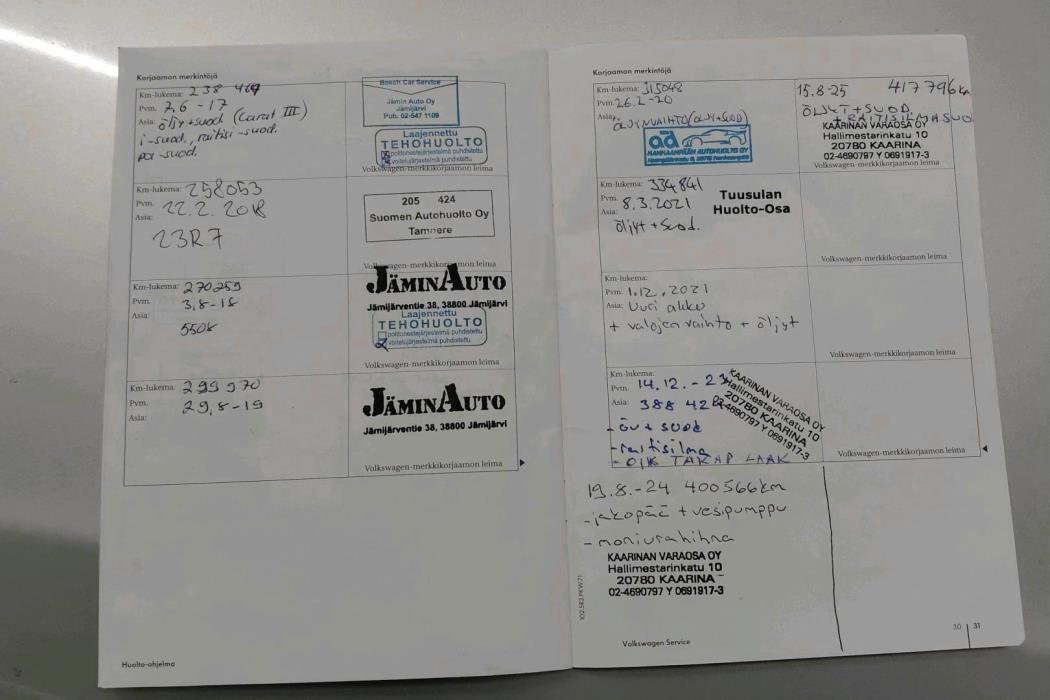 Korjaamon merkintöjä
Km-lukema: 238 469
Pvm. 7,6 -17
Asia: öljy+suod (Carat III)
i-suod, raitisi-suod.
pa-suod.
Bosch Car Service
Jämin Auto Oy
Jämijärvi
Puh. 02-547 1109
Laajennettu
TEHOHUOLTO
polttonestejärjestelmä puhdistettu
voitelujärjestelmä puhdistettu
Volkswagen-merkkikorjaamon leima
Km-lukema: 258053
Pvm. 22.2.2018
Asia:
23R7
205 424
Suomen Autohuolto Oy
Tampere
Volkswagen-merkkikorjaamon leima
Km-lukema: 270259
Pvm. 3,8-18
Asia:
JÄMINAUTO
Jämijärventie 38, 38800 Jämijärvi
Laajennettu
TEHOHUOLTO
polttonestejärjestelmä puhdistettu
voitelujärjestelmä puhdistettu
Volkswagen-merkkikorjaamon leima
Km-lukema: 299 970
Pvm. 29,8-19
Asia:
JÄMINAUTO
Jämijärventie 38, 38800 Jämijärvi
Volkswagen-merkkikorjaamon leima
Huolto-ohjelma
Korjaamon merkintöjä
Km-lukema: 315048
Pvm. 26.2-20
Asia: ÖLJYNVAIHTO (ÖLJY+SUOD)
ad
AUTOHUOLTO OY
Volkswagen-merkkikorjaamon leima
15.8-25 417796km
ÖLJYT+SUOD
+RAITISILMASUOD
KAARINAN VARAOSA OY
Hallimestarinkatu 10
20780 KAARINA
02-4690797 Y 0691917-3
Volkswagen-merkkikorjaamon leima
Km-lukema: 334841
Pvm. 8.3.2021
Asia: öljyt+suod.
Tuusulan
Huolto-Osa
Volkswagen-merkkikorjaamon leima
Km-lukema:
Pvm. 1.12.2021
Asia: Uusi akku
+ valojen vaihto + öljyt
Volkswagen-merkkikorjaamon leima
Km-lukema:
Pvm. 14.12.-22
Asia: 388 42
-öv+suod
-raitisilma
-OIK TAKAP LAAK
KAARINAN VARAOSA OY
Hallimestarinkatu 10
20780 KAARINA
02-4690797 Y 0691917-3
Volkswagen-merkkikorjaamon leima
19.8.-24 400566km
-jakopää + vesipumppu
-moniurahihna
KAARINAN VARAOSA OY
Hallimestarinkatu 10
20780 KAARINA
02-4690797 Y 0691917-3
102.583.PKW.71
Volkswagen Service
30 31